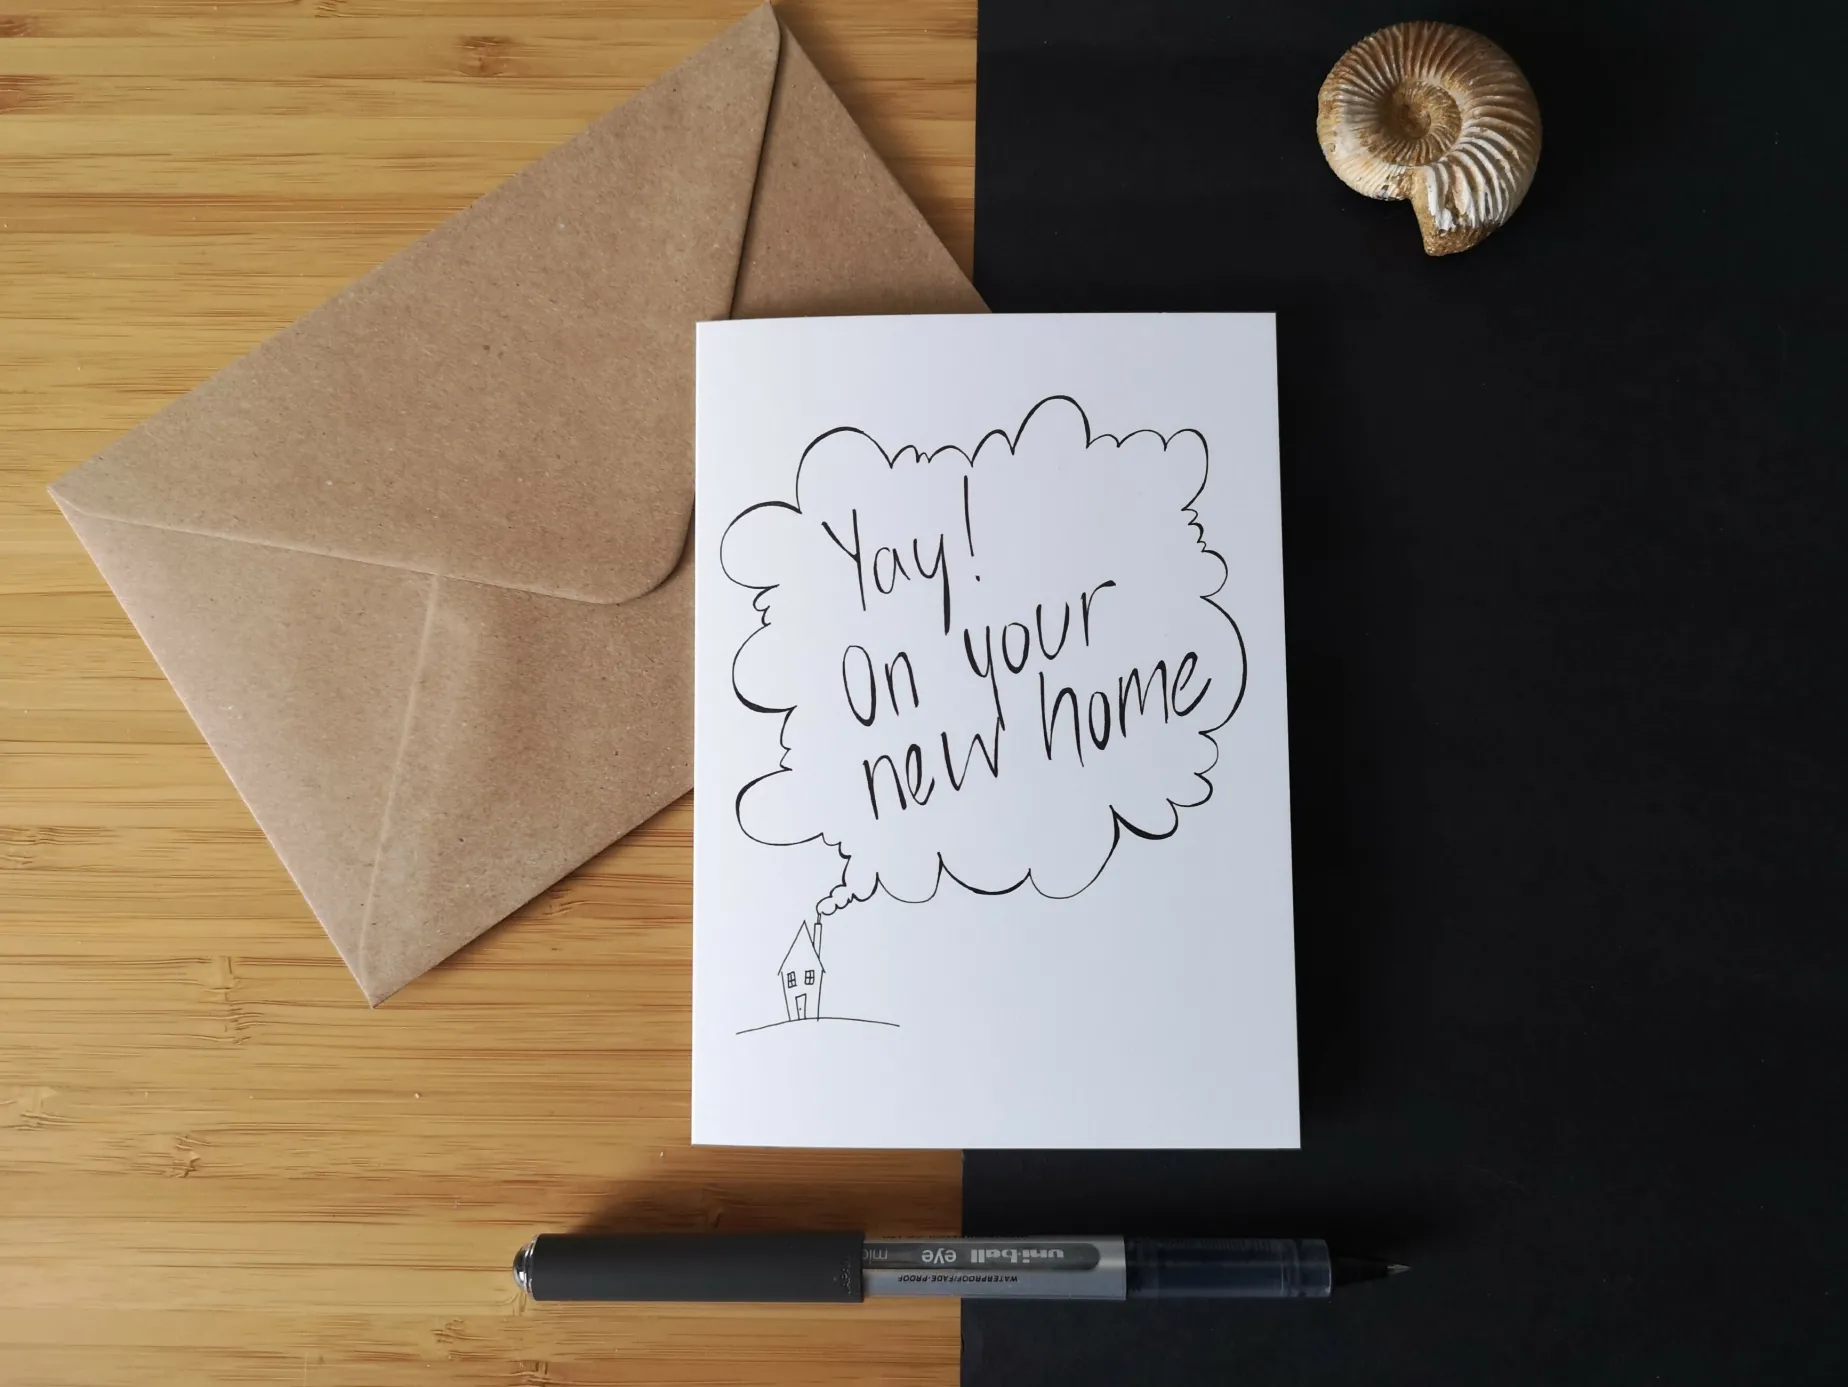 Yay!
On your
new home
uni-ball eye mic
WATERPROOF/FADE-PROOF